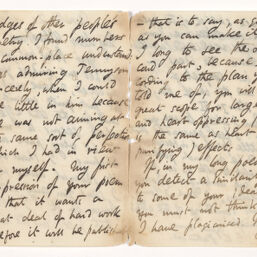 dges of other people's
etry, I found numbers
common-place understand
admiring Tennyson
cerely, when I could
e little in him because
was not aiming at
same sort of perfection
hich I had in view
myself. My first
pression of your poem
that it wants a
eat deal of hard work
efore it will be publish
– that is to say, as go
as you can make it
I long to see the
cond part, because
cording to the plan
told me of, you will
great scope for large
and heart oppressing (
is the same as heart
rifying) effects.
If, in my long poem
you detect a similarit
to some of your idea
you must not think
I have plagiarised